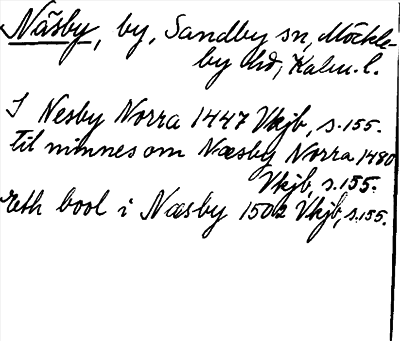 Näsby, by, Sandby sn, Möckle-
by hd, Kalm. l.
I Nesby Norra 1447 Vkjb, s. 155.
til minnes om Næsby Norra 1480
Vkjb, s. 155.
Eth bool i Næsby 1502 Vkjb, s. 155.